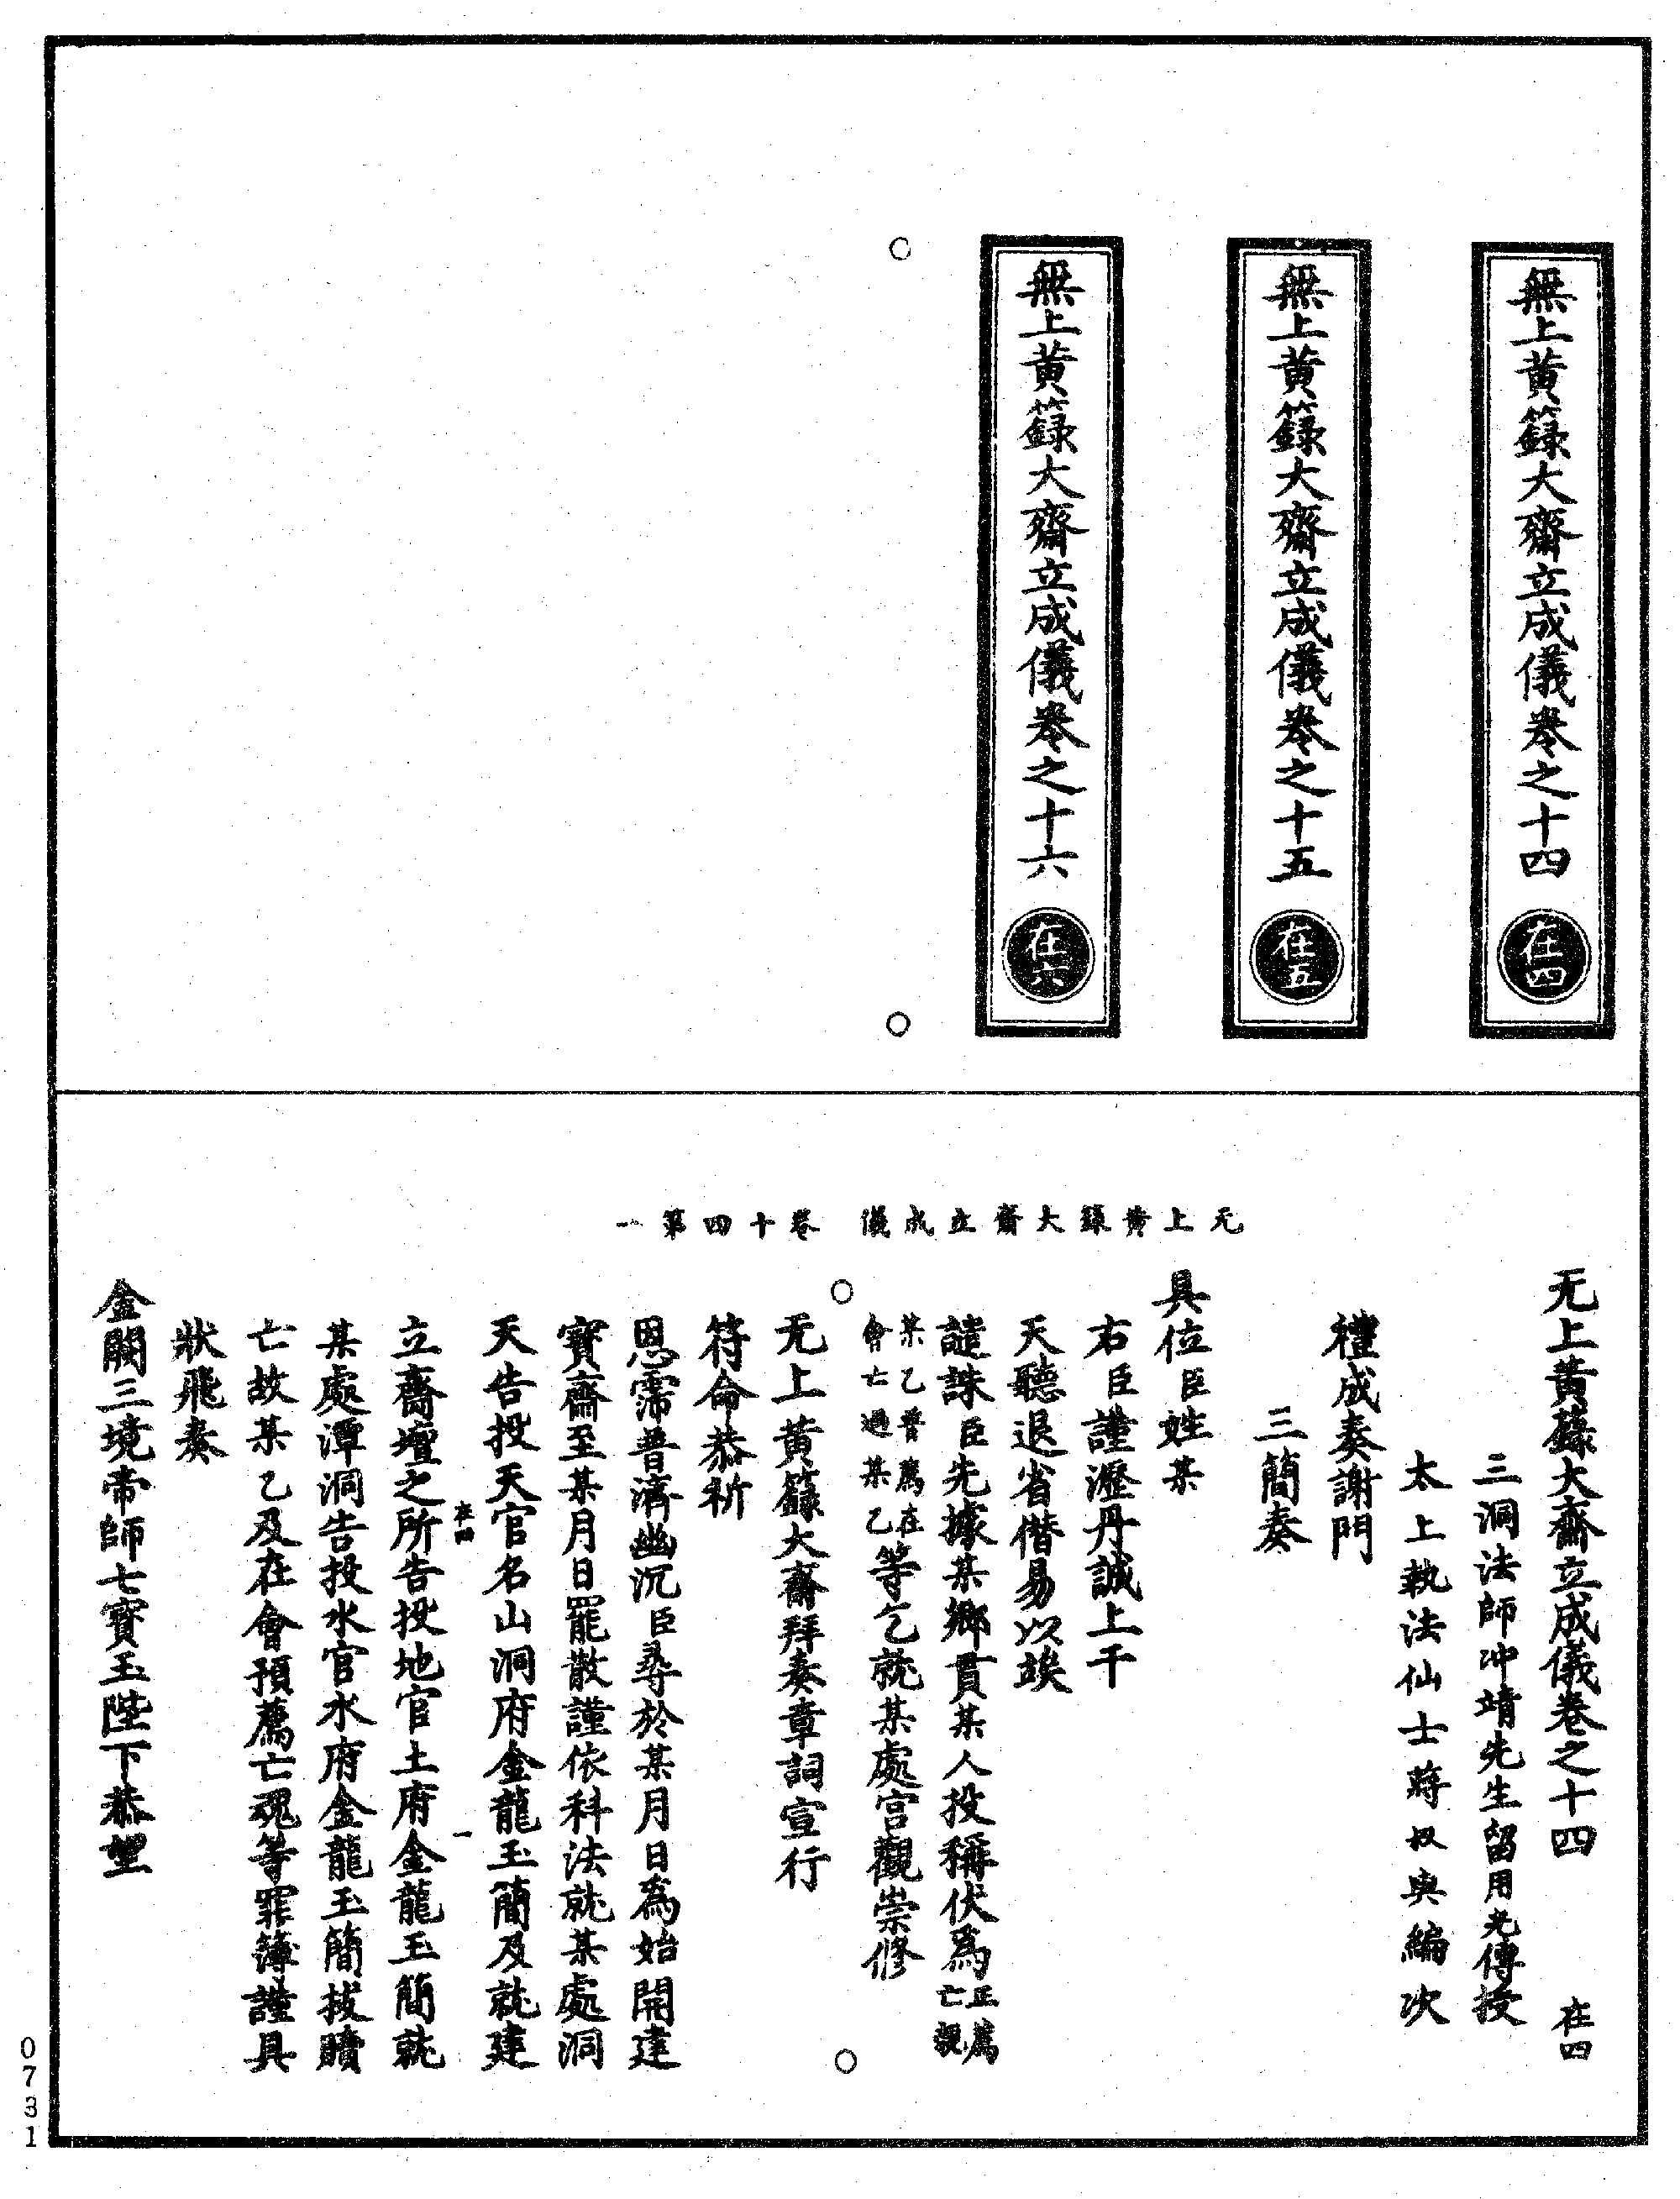 無上黃籙大齋立成儀卷之十四 在四
無上黃籙大齋立成儀卷之十五 在五
無上黃籙大齋立成儀卷之十六 在六
无上黃籙大齋立成儀 卷十四第一
无上黃籙大齋立成儀卷之十四 在四
三洞法師冲靖先生留用光傳授
太上執法仙士蔣叔輿編次
禮成奏謝門
三簡奏
具位臣姓某
右臣謹瀝丹誠上干
天聽退省僭易以俟
譴誅臣先據某鄉貫某人投稱伏爲正薦亡親
某乙普薦在會亡過某乙等乞就某處宮觀崇修
无上黃籙大齋拜奏章詞宣行
符命恭祈
恩霈普濟幽沉臣尋於某月日爲始開建
寶齋至某月日罷散謹依科法就某處洞
天告投天官名山洞府金龍玉簡及就建
在四 一
立齋壇之所告投地官土府金龍玉簡就
某處潭洞告投水官水府金龍玉簡拔贖
亡故某乙及在會預薦亡魂等罪簿謹具
狀飛奏
金闕三境帝師七寶玉陛下恭望
0731